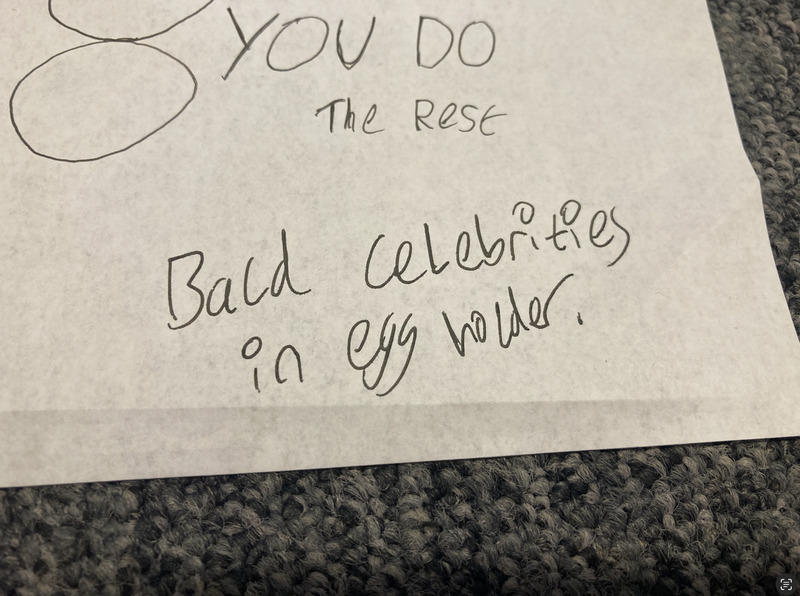 YOU DO
The Rest
Bald celebrities
in egg holder.